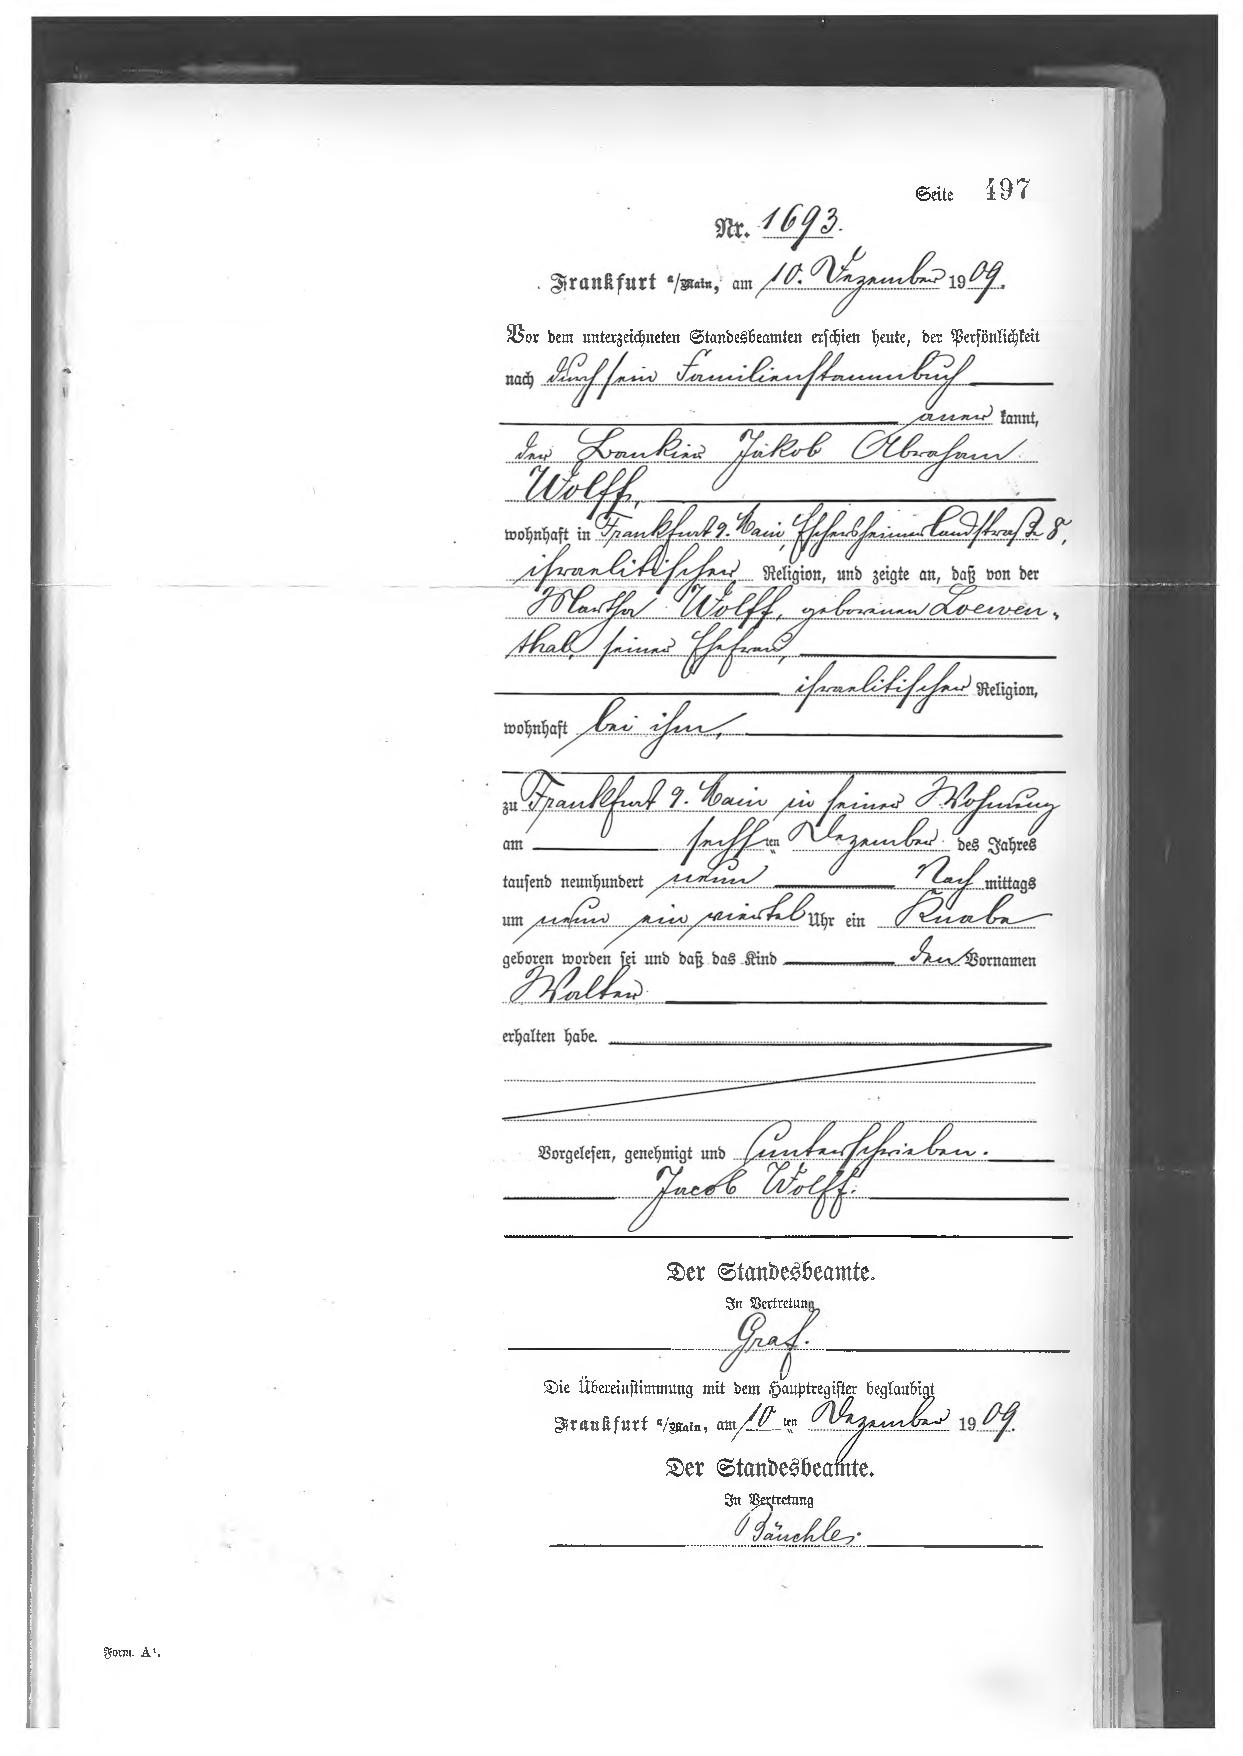 Seite 497
Nr. 1693.
Frankfurt a/Main, am 10. Dezember 1909.
Vor dem unterzeichneten Standesbeamten erschien heute, der Persönlichkeit
nach durch sein Familienstammbuch
aner kannt,
der Bankier Jakob Abraham
Wolff,
wohnhaft in Frankfurt a. Main, Eschersheimerlandstraße 8,
israelitischer Religion, und zeigte an, daß von der
Martha Wolff, geborenen Loewen-
thal, seiner Ehefrau,
israelitischer Religion,
wohnhaft bei ihm,
zu Frankfurt a. Main in seiner Wohnung
am sechsten Dezember des Jahres
tausend neunhundert neun Nach mittags
um neun ein viertel Uhr ein Knabe
geboren worden sei und daß das Kind den Vornamen
Walter
erhalten habe.
Vorgelesen, genehmigt und unterschrieben.
Jacob Wolff.
Der Standesbeamte.
In Vertretung
Graf.
Die Übereinstimmung mit dem Hauptregister beglaubigt
Frankfurt a/Main, am 10ten Dezember 1909.
Der Standesbeamte.
In Vertretung
Form. A¹.